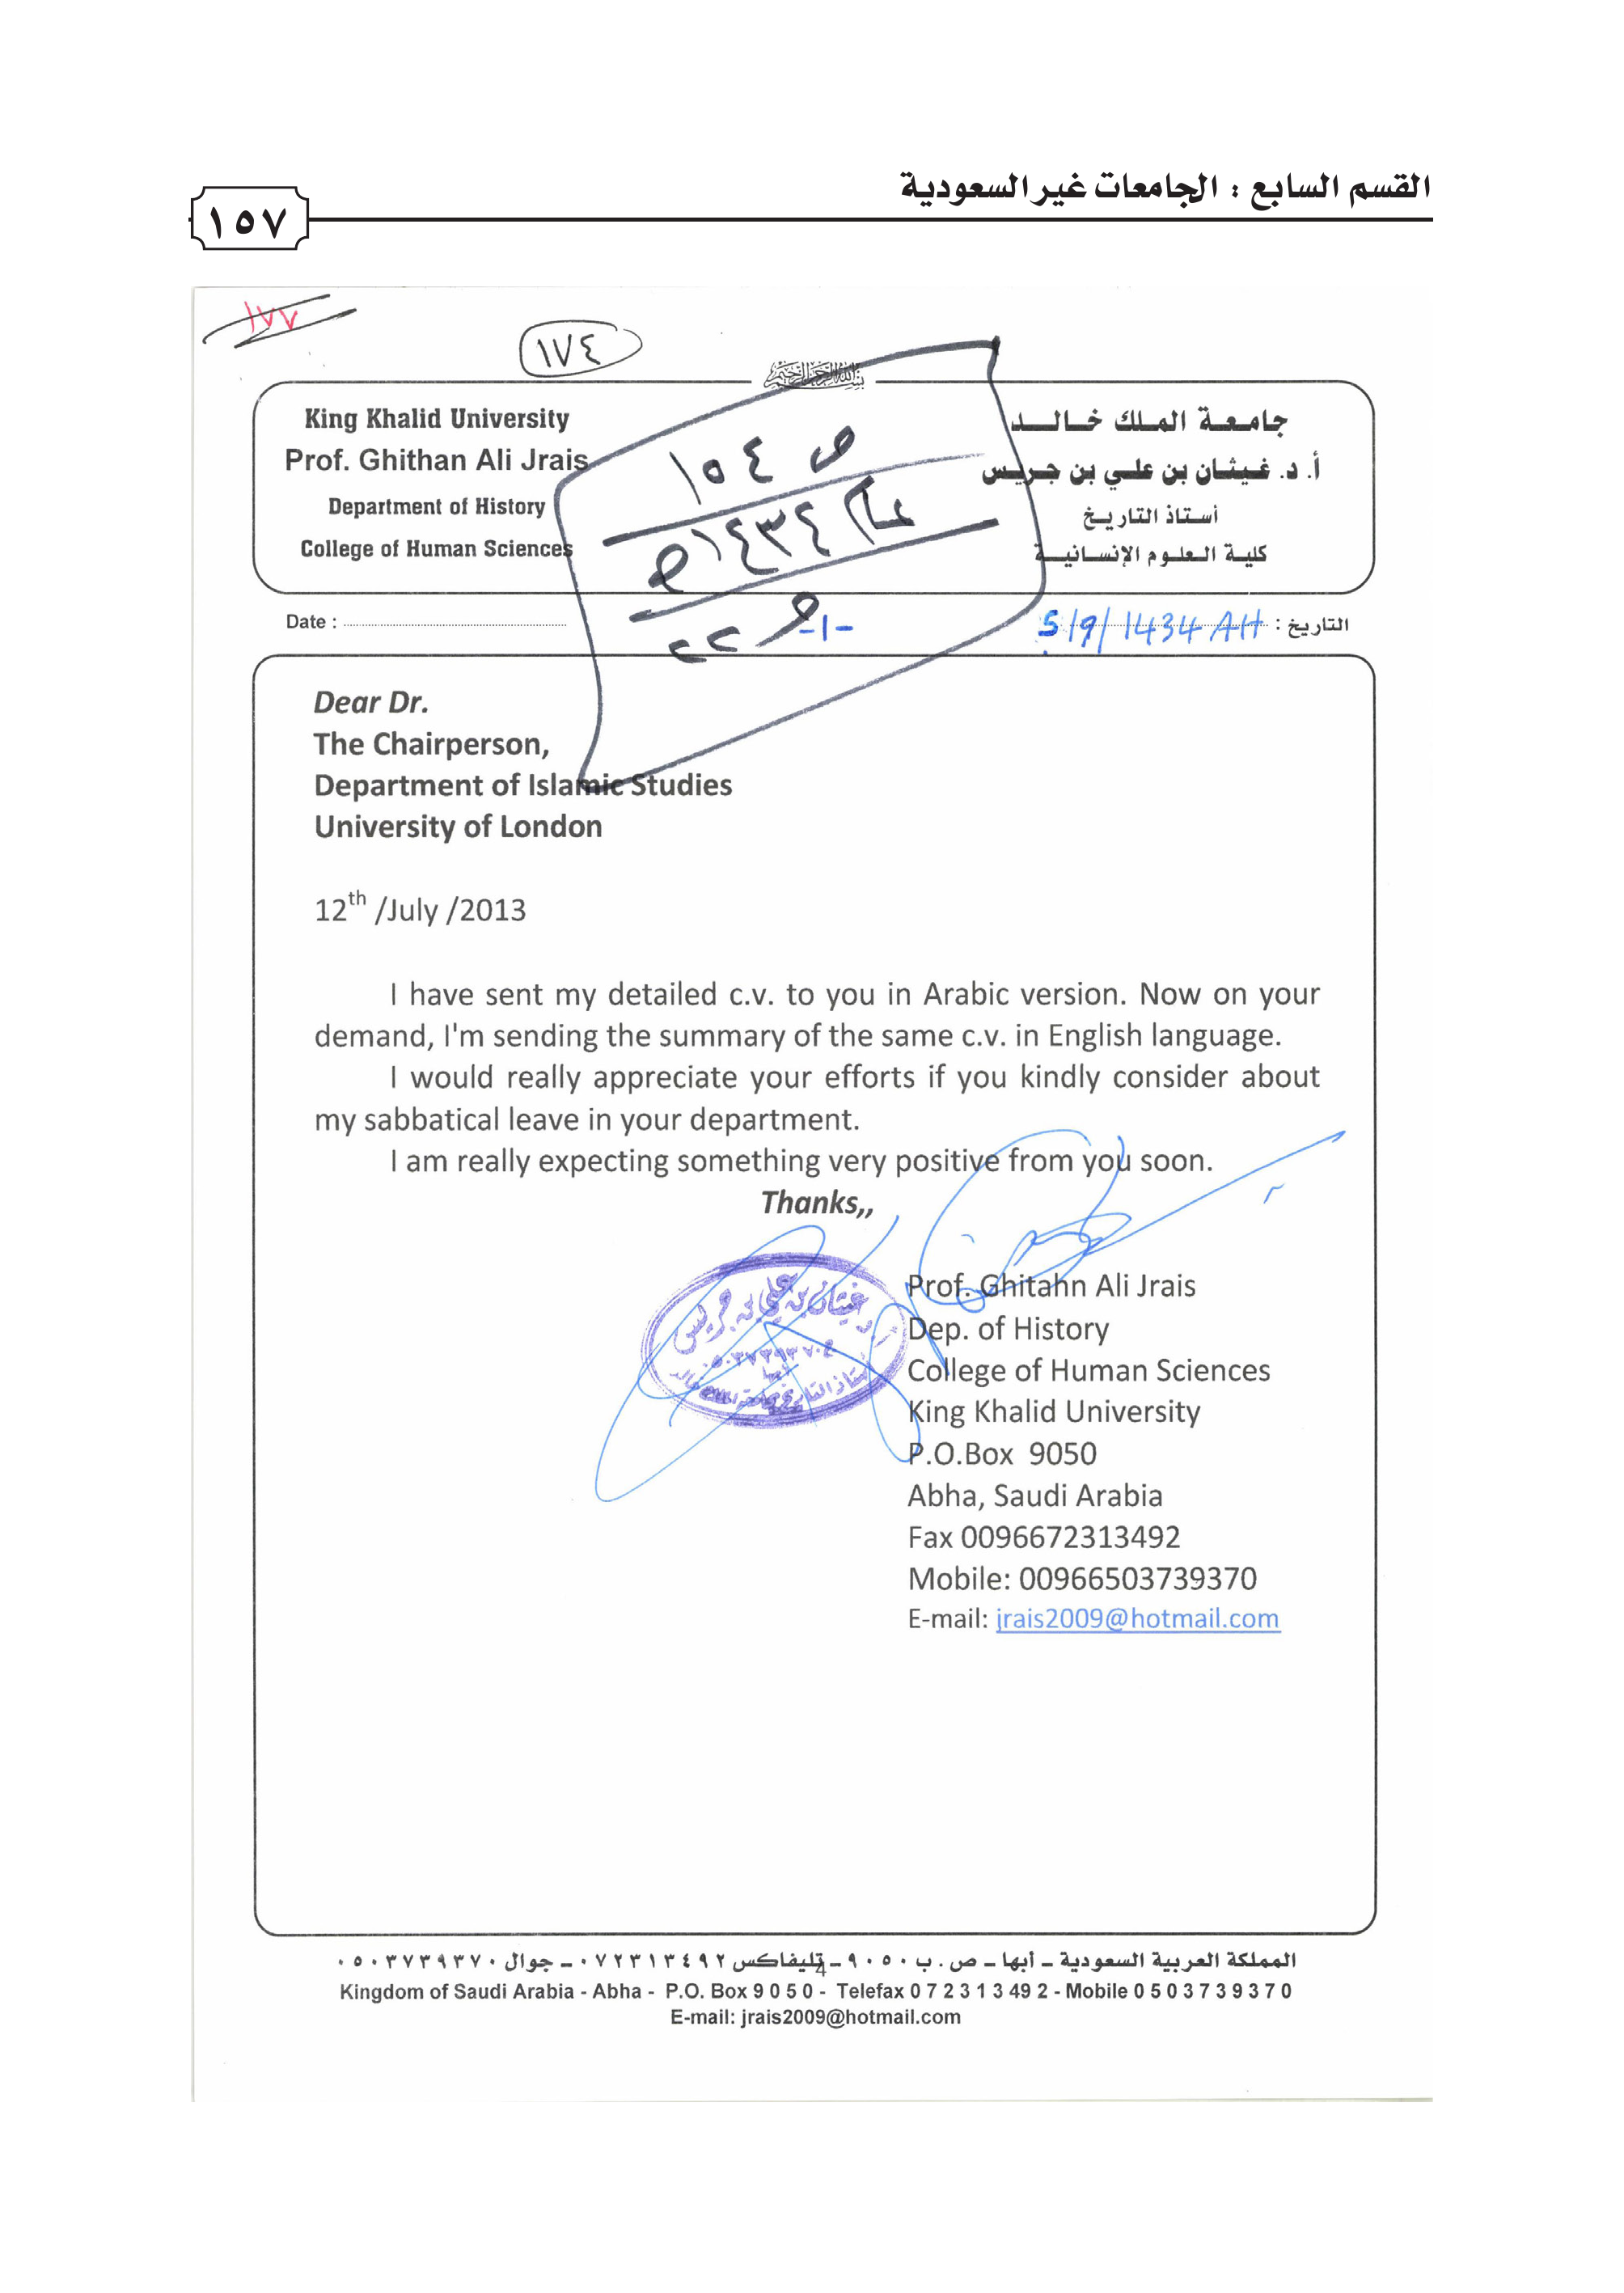 القسم السابع : الجامعات غير السعودية
١٥٧
١٧٧
١٧٤
King Khalid University
Prof. Ghithan Ali Jrais
Department of History
College of Human Sciences
جامعة الملك خالد
أ. د. غيثان بن علي بن جريس
أستاذ التاريخ
كلية العلوم الإنسانية
ص ١٥٤
عام ١٤٣٤هـ
ص ٢٢
-١-
Date :
التاريخ : 5/9/1434 AH
Dear Dr.
The Chairperson,
Department of Islamic Studies
University of London
12th /July /2013
I have sent my detailed c.v. to you in Arabic version. Now on your
demand, I'm sending the summary of the same c.v. in English language.
I would really appreciate your efforts if you kindly consider about
my sabbatical leave in your department.
I am really expecting something very positive from you soon.
Thanks,,
أ. د غيثان بن علي بن جريس
ج ٠٥٠٣٧٣٩٣٧٠
أبها
أستاذ التاريخ بجامعة الملك خالد
Prof. Ghitahn Ali Jrais
Dep. of History
College of Human Sciences
King Khalid University
P.O.Box 9050
Abha, Saudi Arabia
Fax 0096672313492
Mobile: 00966503739370
E-mail: jrais2009@hotmail.com
المملكة العربية السعودية - أبها - ص . ب ٩٠٥٠ - تليفاكس ٠٧٢٣١٣٤٩٢ - جوال ٠٥٠٣٧٣٩٣٧٠
4
Kingdom of Saudi Arabia - Abha - P.O. Box 9 0 5 0 - Telefax 0 7 2 3 1 3 49 2 - Mobile 0 5 0 3 7 3 9 3 7 0
E-mail: jrais2009@hotmail.com